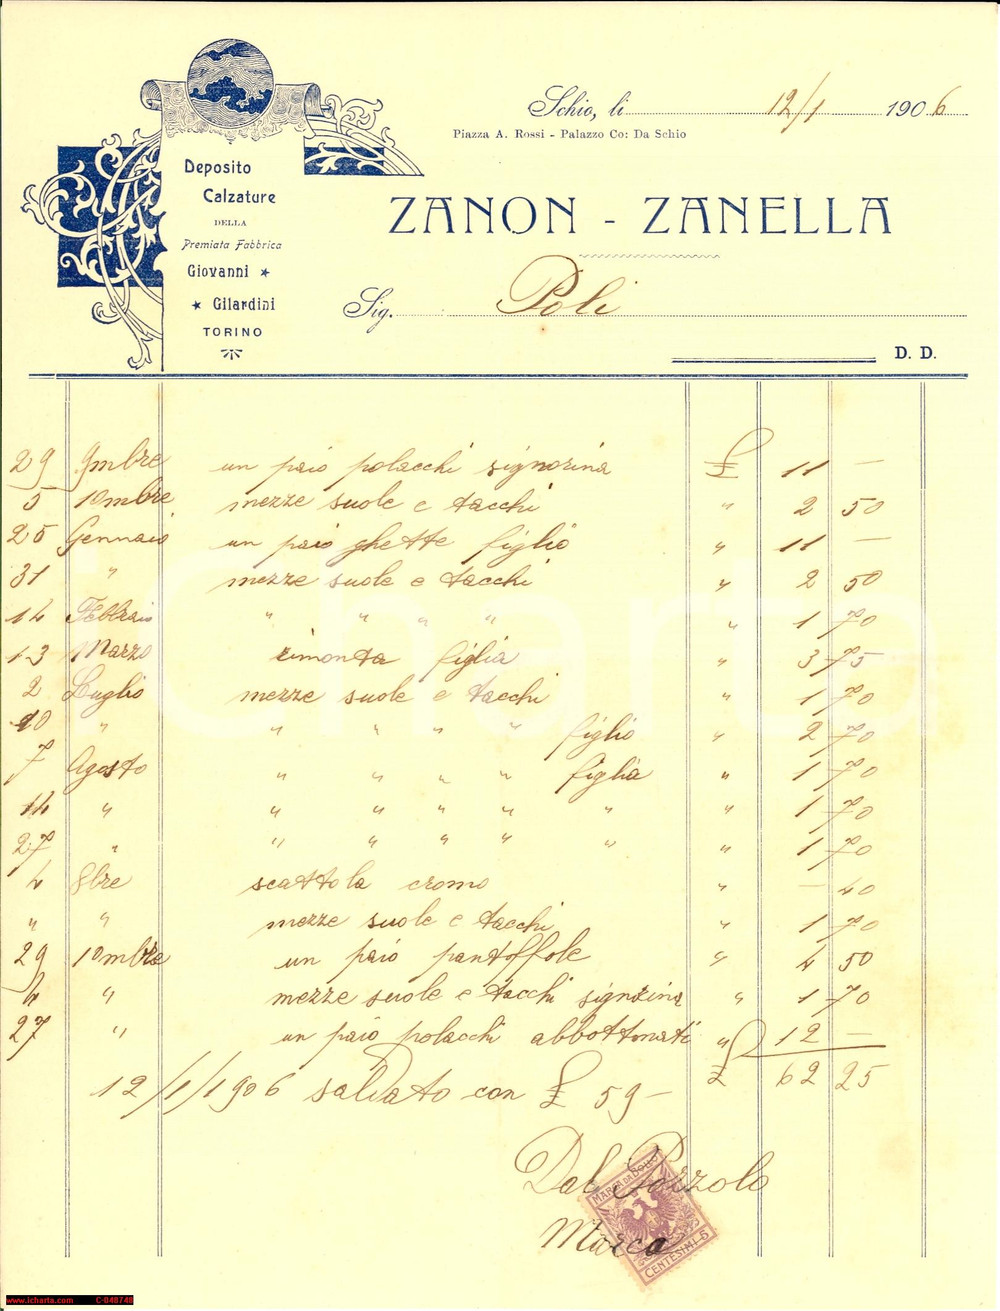 Schio, li 12/1 1906
Piazza A. Rossi - Palazzo Co: Da Schio
Deposito
Calzature
DELLA
Premiata Fabbrica
Giovanni ★
★ Gilardini
TORINO
ZANON - ZANELLA
Sig. Poli
D. D.
29 9mbre un paio polacchi signorina £ 11 —
5 10mbre mezze suole e tacchi " 2 50
25 Gennaio un paio ghette figlio " 11 —
31 " mezze suole e tacchi " 2 50
14 Febbraio " " " " " 1 70
13 Marzo rimonta figlia " 3 75
2 Luglio mezze suole e tacchi " 1 70
20 " " " " " figlio " 2 70
7 Agosto " " " " figlia " 1 70
14 " " " " " " " 1 70
27 " " " " " " " 1 70
4 8bre scattola cromo " — 40
" " mezze suole e tacchi " 1 70
29 10mbre un paio pantoffole " 4 50
4 " mezze suole e tacchi signorina " 1 70
27 " un paio polacchi abbottonati " 12 —
£ 62 25
12/1/1906 saldato con £ 59 —
Dal Pozzolo
Marco
MARCA DA BOLLO
CENTESIMI 5
iCharta
www.icharta.com C-048748